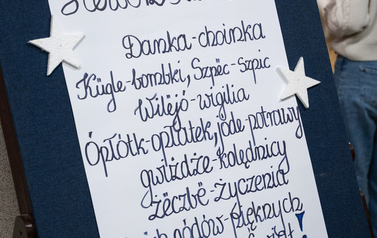 Danka-choinka
Kugle-bombki, Szpëc-szpic
Wilejô-wigilia
Ôpłôtk-opłatek, jôde-potrawy
gwiżdże-kolędnicy
żëczbë-życzenia
gódów pięknych